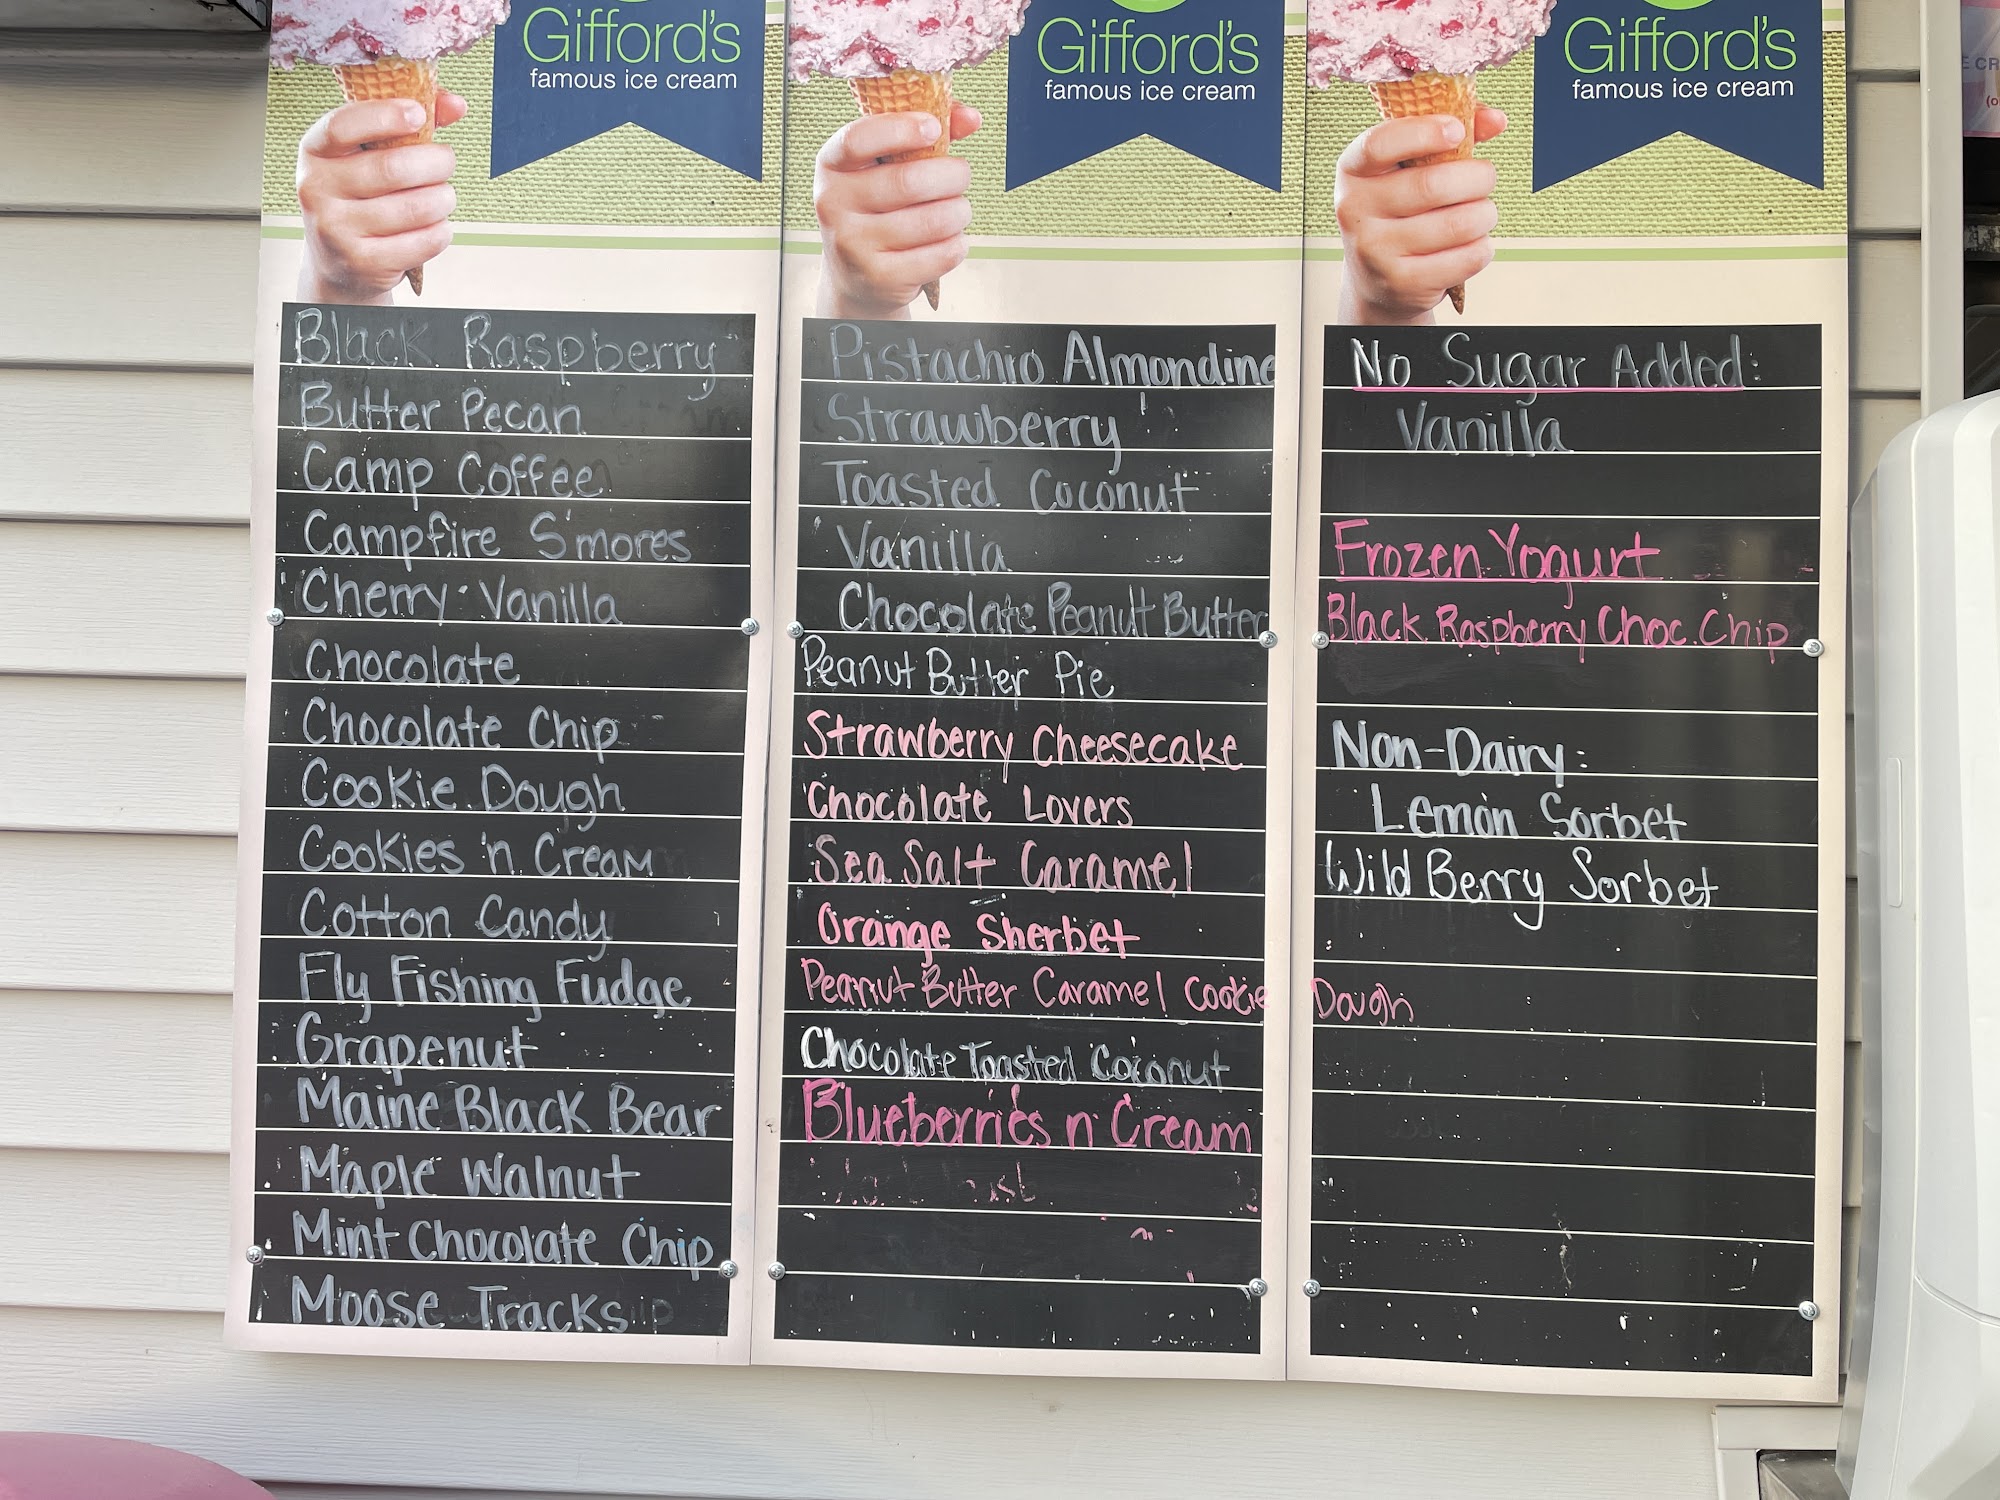 Gifford's
famous ice cream
Black Raspberry
Butter Pecan
Camp Coffee
Campfire S'mores
Cherry Vanilla
Chocolate
Chocolate Chip
Cookie Dough
Cookies 'n Cream
Cotton Candy
Fly Fishing Fudge
Grapenut
Maine Black Bear
Maple Walnut
Mint Chocolate Chip
Moose Tracks
Gifford's
famous ice cream
Pistachio Almondine
Strawberry
Toasted Coconut
Vanilla
Chocolate Peanut Butter
Peanut Butter Pie
Strawberry Cheesecake
Chocolate Lovers
Sea Salt Caramel
Orange Sherbet
Peanut Butter Caramel Cookie Dough
Chocolate Toasted Coconut
Blueberries n' Cream
Gifford's
famous ice cream
No Sugar Added:
Vanilla
Frozen Yogurt
Black Raspberry Choc. Chip
Non-Dairy:
Lemon Sorbet
Wild Berry Sorbet